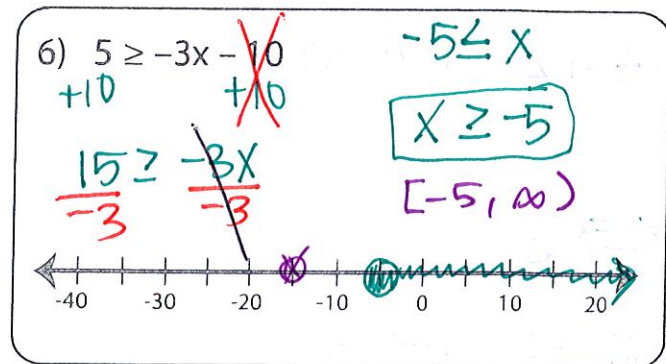 6) 5 ≥ -3x - 10
+10 +10
15 ≥ -3x
-3 -3
-5 ≤ x
x ≥ -5
[-5, ∞)
-40 -30 -20 -10 0 10 20